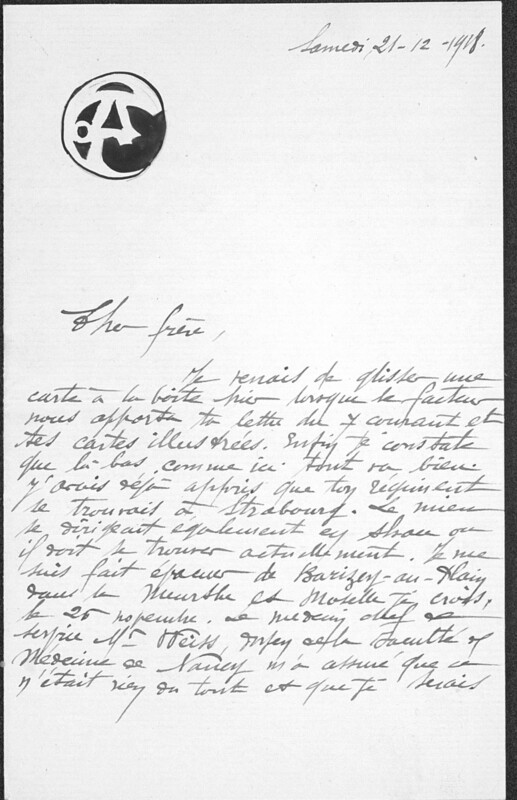 Samedi, 21-12-1918.
Cher frère,
Je venais de glisser une
carte à la boîte hier lorsque le facteur
nous apporta ta lettre du 7 courant et
tes cartes illustrées. Enfin je constate
que là-bas, comme ici tout va bien.
J'avais déjà appris que ton régiment
se trouvais à Strabourg. Le mien
se dirigeait également en
il doit se trouver actuellement. Je me
suis fait évacuer de Barizey-au-Plain
dans la Meurthe et Moselle je crois,
le 25 novembre. Le médecin chef de
service Mr Weiss, doyen de la Faculté de
Médecine de Nancy m'a assuré que ce
n'était rien du tout et que je serais